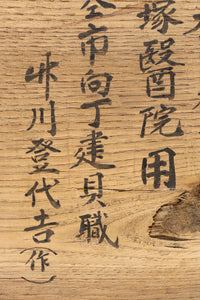 塚醫院用
全市向丁建具職
井川登代吉(作)